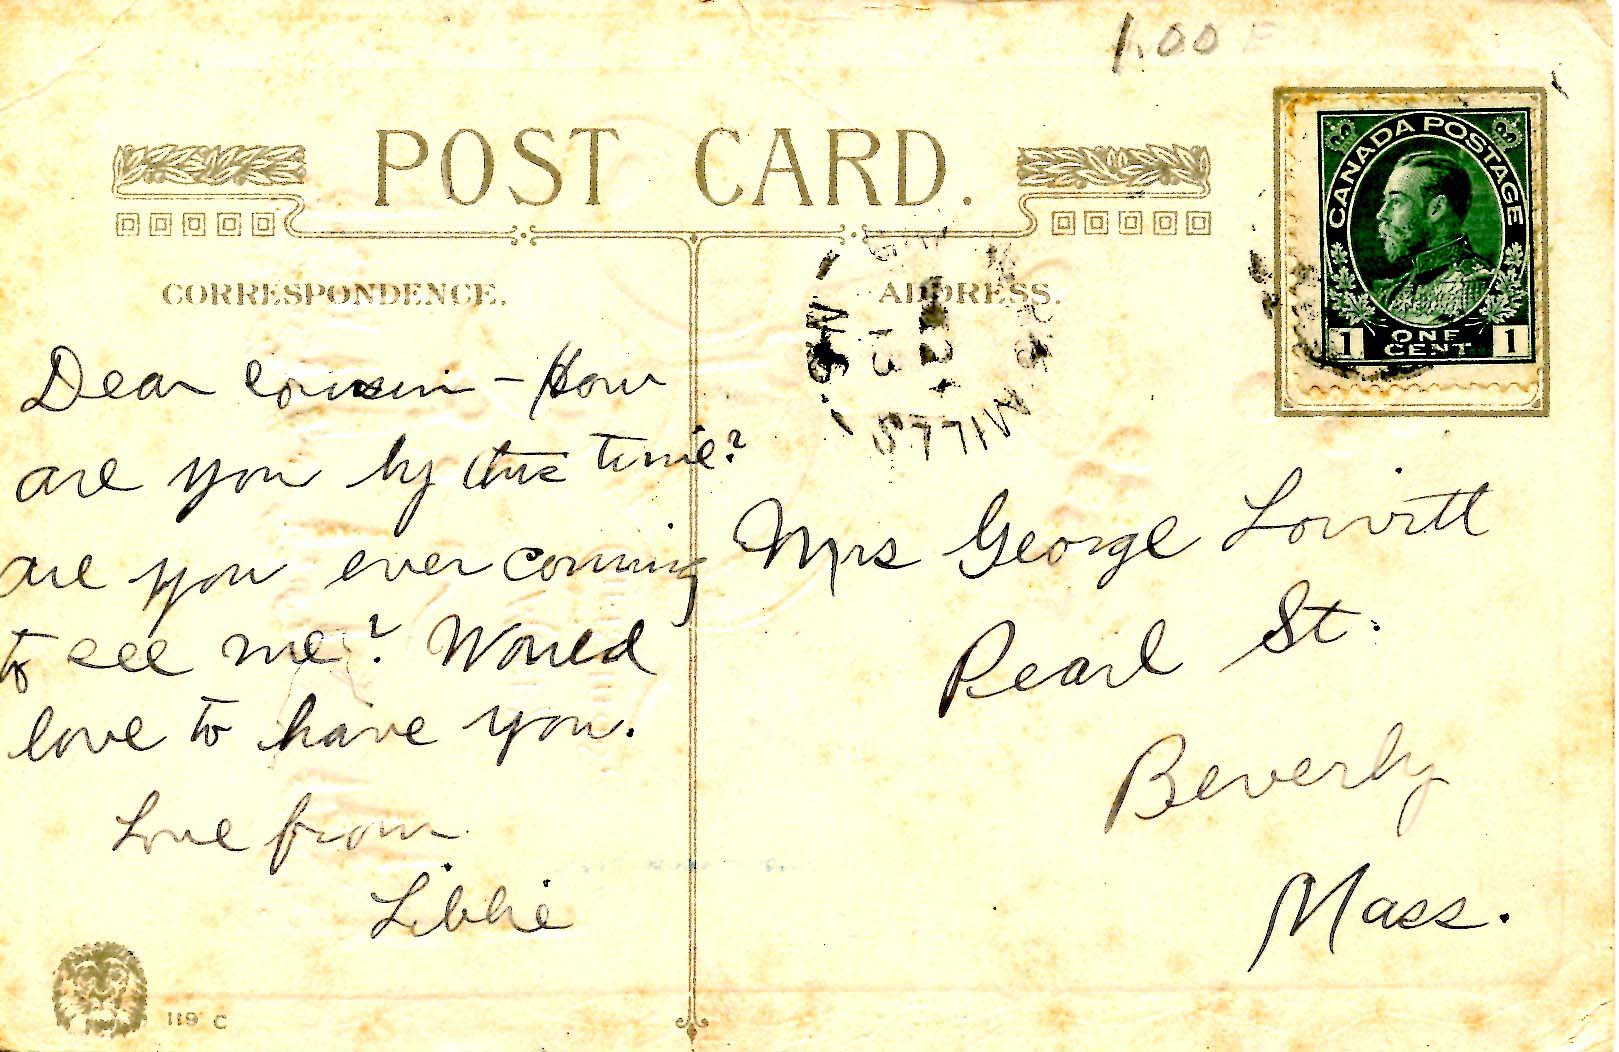 1.00
POST CARD.
CANADA POSTAGE
1 ONE CENT 1
CORRESPONDENCE.
ADDRESS.
MILLS
N.S.
13
Dear Cousin - How
are you by this time?
are you ever coming
to see me? Would
love to have you.
Love from
Libbie
Mrs George Lowitt
Pearl St.
Beverly
Mass.
119 C